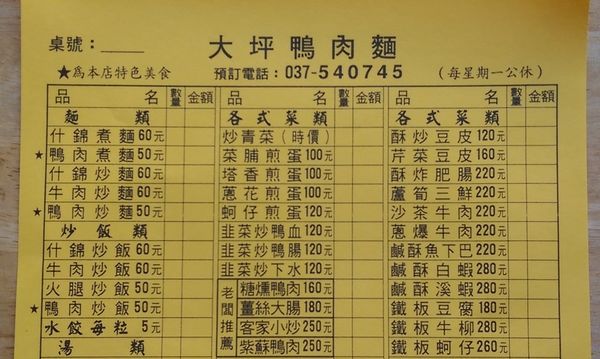 桌號：
大坪鴨肉麵
★為本店特色美食
預訂電話：037-540745
(每星期一公休)
品名 數量 金額
麵類
什錦煮麵60元
★鴨肉煮麵50元
什錦炒麵60元
牛肉炒麵60元
★鴨肉炒麵50元
炒飯類
什錦炒飯60元
牛肉炒飯60元
火腿炒飯50元
★鴨肉炒飯50元
水餃每粒5元
湯類
品名 數量 金額
各式菜類
炒青菜(時價)
菜脯煎蛋100元
塔香煎蛋100元
蔥花煎蛋100元
蚵仔煎蛋120元
韭菜炒鴨血120元
韭菜炒鴨腸120元
韭菜炒下水120元
老闆推薦
糖燻鴨肉160元
薑絲大腸180元
客家小炒250元
紫蘇鴨肉250元
品名 數量 金額
各式菜類
酥炒豆皮120元
芹菜豆皮160元
酥炸肥腸220元
蘆筍三鮮220元
沙茶牛肉220元
蔥爆牛肉220元
鹹酥魚下巴220元
鹹酥白蝦280元
鹹酥溪蝦280元
鐵板豆腐180元
鐵板牛柳280元
鐵板蚵仔260元